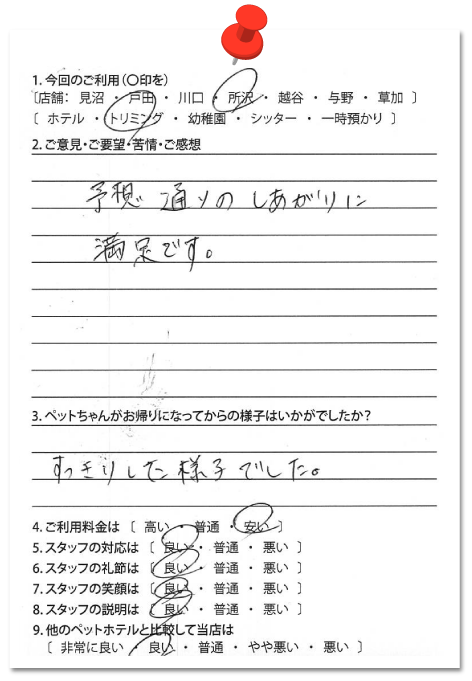 1. 今回のご利用(〇印を)
〔店舗: 見沼 ・ 戸田 ・ 川口 ・ 所沢 ・ 越谷 ・ 与野 ・ 草加 〕
〔 ホテル ・ トリミング ・ 幼稚園 ・ シッター ・ 一時預かり 〕
2. ご意見・ご要望・苦情・ご感想
予想通りのしあがりに
満足です。
3. ペットちゃんがお帰りになってからの様子はいかがでしたか？
すっきりした様子でした。
4. ご利用料金は 〔 高い ・ 普通 ・ 安い 〕
5. スタッフの対応は 〔 良い ・ 普通 ・ 悪い 〕
6. スタッフの礼節は 〔 良い ・ 普通 ・ 悪い 〕
7. スタッフの笑顔は 〔 良い ・ 普通 ・ 悪い 〕
8. スタッフの説明は 〔 良い ・ 普通 ・ 悪い 〕
9. 他のペットホテルと比較して当店は
〔 非常に良い ・ 良い ・ 普通 ・ やや悪い ・ 悪い 〕